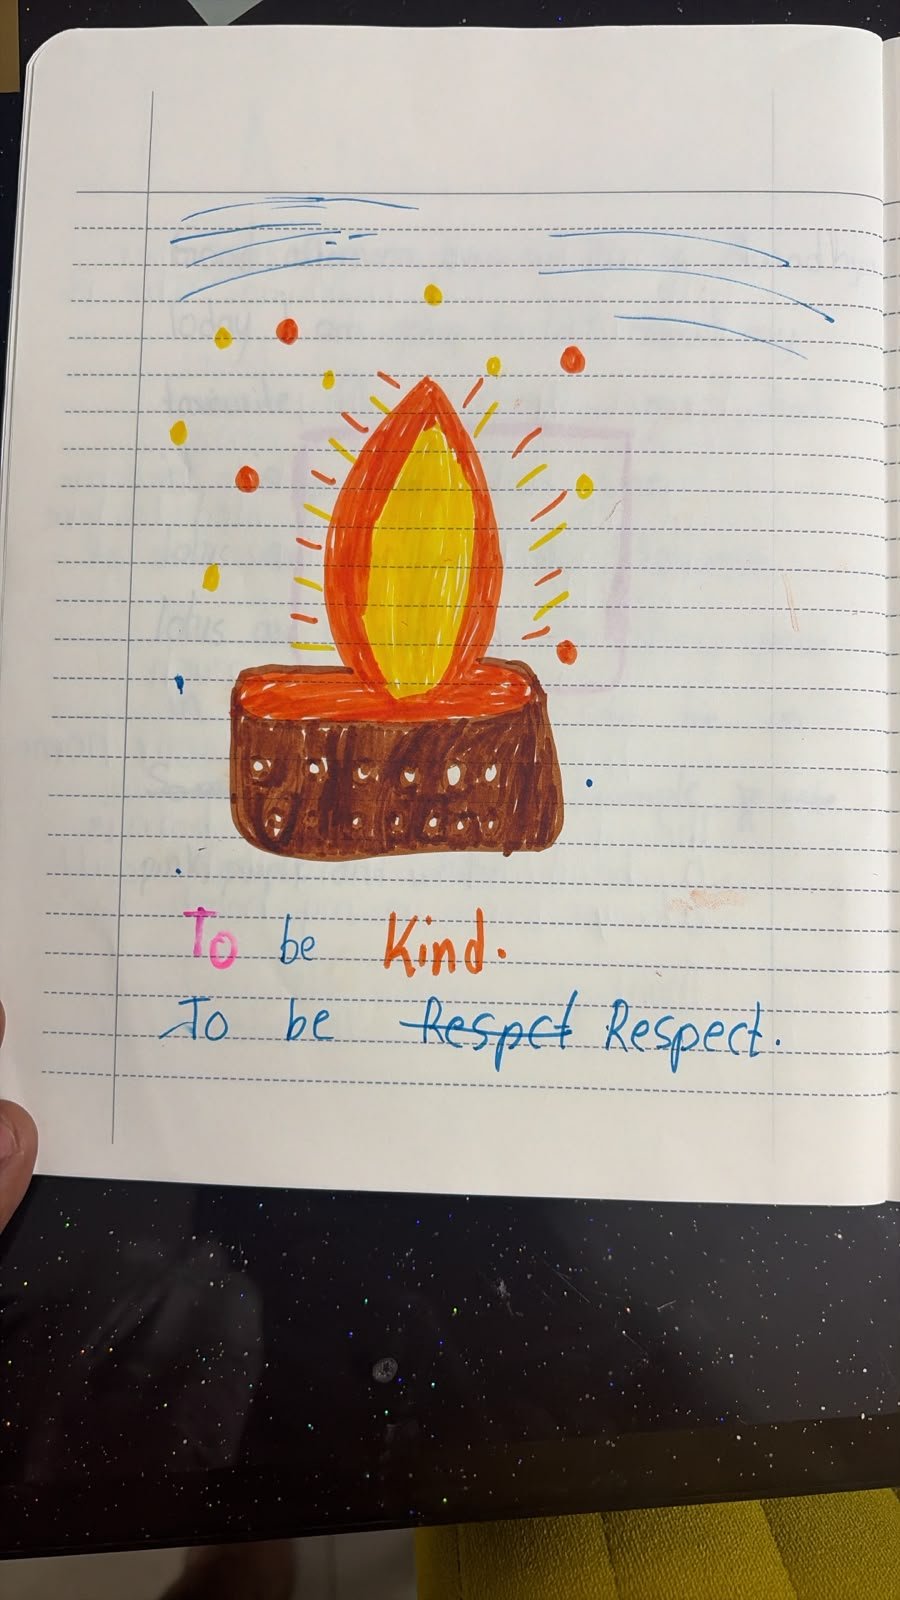 To be Kind.
To be Respct Respect.